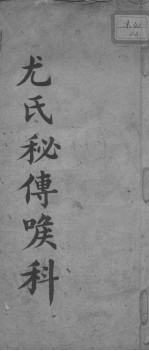 尤氏秘傳喉科